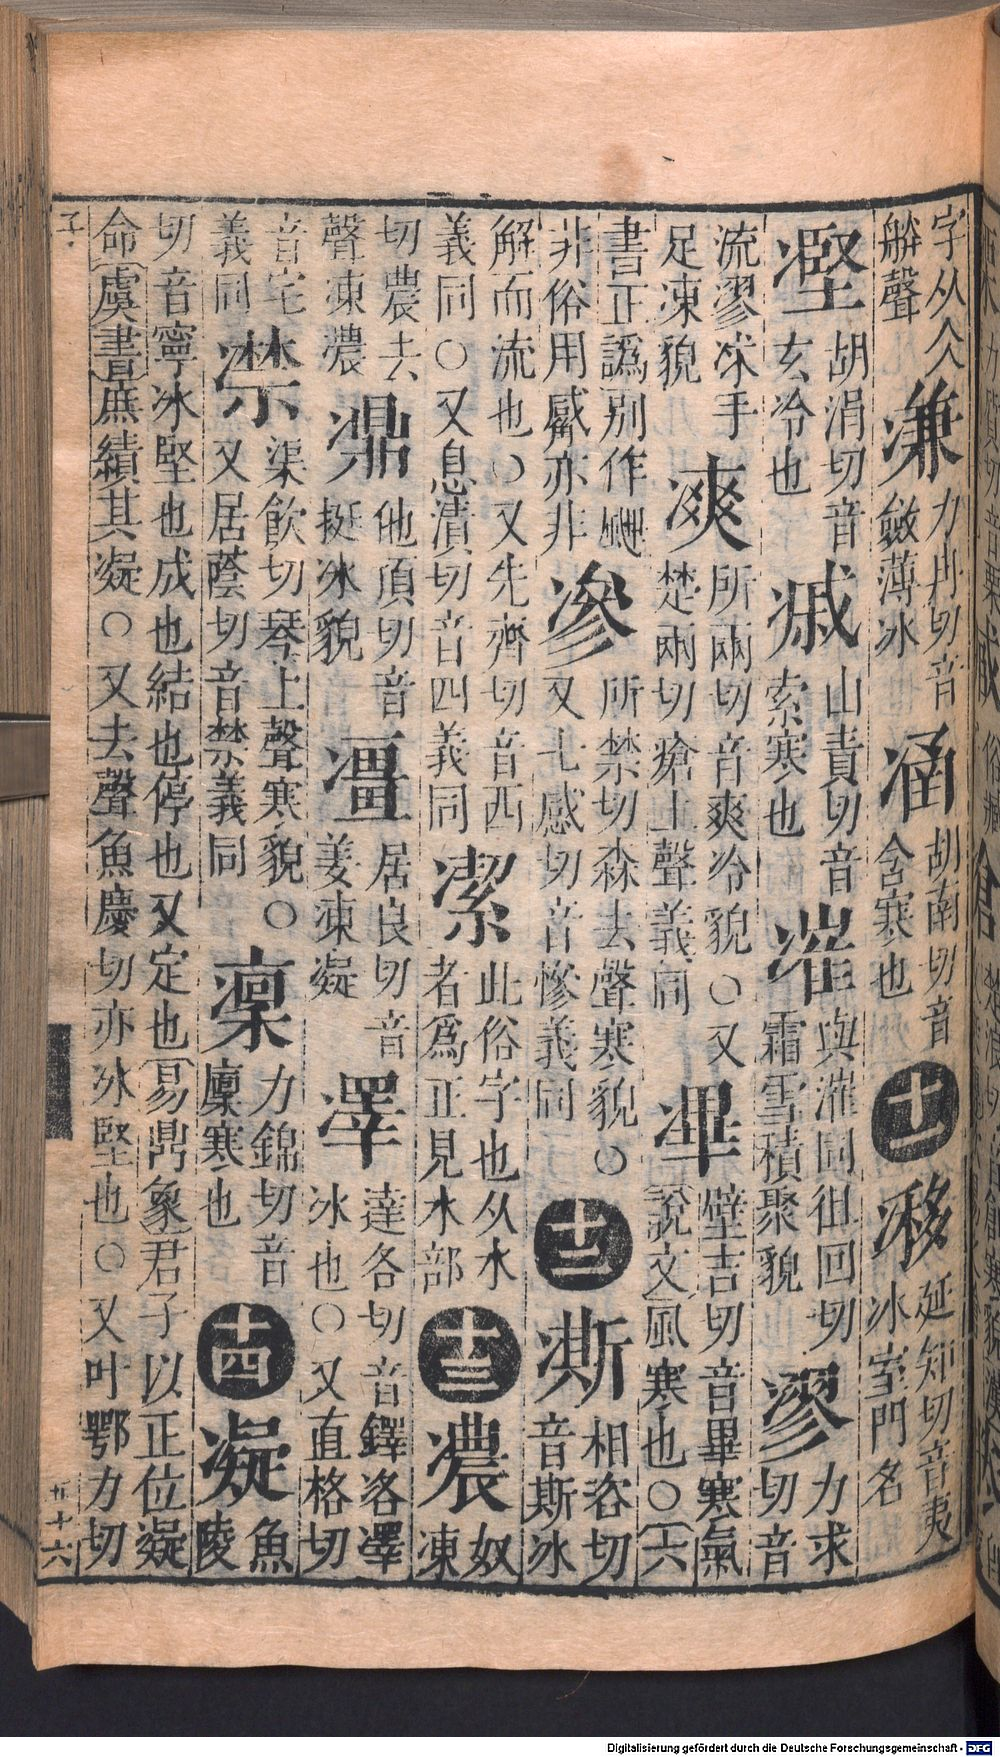 字从仌
鮩聲
溓
力冉切音
斂薄冰
涵
胡南切音
含寒也
十一
移
延知切音夷
冰室門名
𠗊
胡涓切音
玄冷也
山責切音
索寒也
凗
與漼同徂回切
霜雪積聚貌
漻
力求
切音
流漻冰手
足凍貌
凔
所兩切音爽冷貌○又
楚兩切瘡上聲義同
滭
壁吉切音畢寒氣
說文風寒也○六
書正譌別作
非俗用觱亦非
滲
所禁切森去聲寒貌○
又七感切音慘義同
十二
凘
相咨切
音斯冰
解而流也○又先齊切音西
義同○又息漬切音四義同
潔
此俗字也从水
者爲正見水部
十三
濃
奴
凍
切農去
聲凍濃
濎
他頂切音
挺冰貌
殭
居良切音
姜凍凝
澤
達各切音鐸洛澤
冰也○又直格切
音宅
義同
凚
渠飲切琴上聲寒貌○
又居蔭切音禁義同
凜
力錦切音
廩寒也
十四
凝
魚
陵
切音寧冰堅也成也結也停也又定也易鼎象君子以正位凝
命虞書庶績其凝○又去聲魚慶切亦冰堅也○又叶鄂力切
子
十六
Digitalisierung gefördert durch die Deutsche Forschungsgemeinschaft - DFG